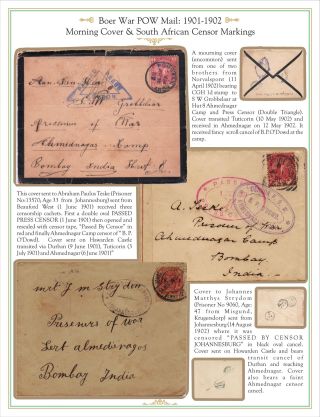 Boer War POW Mail: 1901-1902
Morning Cover & South African Censor Markings
A mourning cover
(uncommon) sent
from one of two
brothers from
Norvalspont (11
April 1902) bearing
CGH 1d stamp to
S W Grobbelaar at
Hut 8 Ahmednagar
Camp and Press Censor (Double Triangle).
Cover transited Tuticorin (10 May 1902) and
received at Ahmednagar on 12 May 1902. It
received fancy scroll cancel of B.P.O'Dowd at the
camp.
S. W. Grobbelaar
Prisoner of War
Ahmednagar Camp
Bombay India
This cover sent to Abraham Paulus Teske (Prisoner
No:13570, Age 33 from Johannesburg) sent from
Beaufort West (1 June 1901) received three
censorship cachets. First a double oval PASSED
PRESS CENSOR (1 June 1901) then opened and
resealed with censor tape, "Passed By Censor" in
red and finally Ahmednagar Camp censor of " B. P.
O'Dowd). Cover sent on Hawarden Castle
transited via Durban (9 June 1901), Tuticorin (3
July 1901) and Ahmednagar (6 June 1901)"
A. Teske
Prisoner of War
Ahmednagar Camp
Bombay
India
mrt J M Strydom
Presenrs of war
Fort almedenagos
Bombay India
Cover to Johannes
Matthys Strydom
(Prisoner No 9060, Age:
47 from Misgund,
Krugersdorp) sent from
Johannesburg (14 August
1902) where it was
censored "PASSED BY CENSOR
JOHANNESBURG" in black oval cancel.
Cover sent on Hawarden Castle and bears
transit cancel of
Durban and reaching
Ahmednagar. Cover
also bears a faint
Ahmednagar censor
cancel.